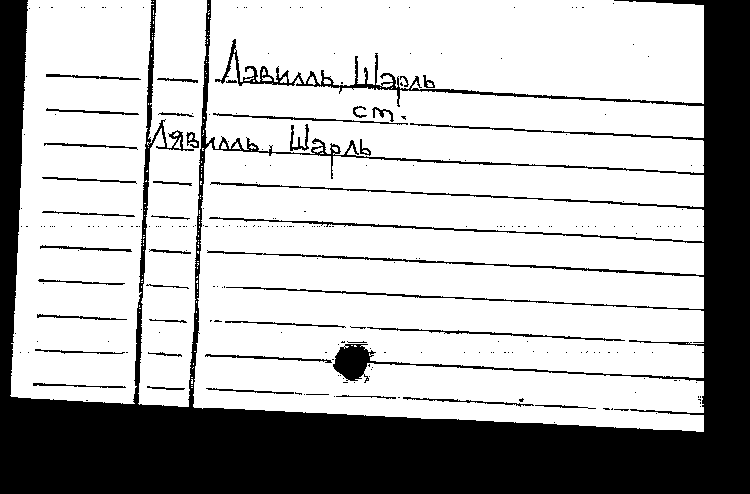 Лавилль, Шарль
см.
Лявилль, Шарль